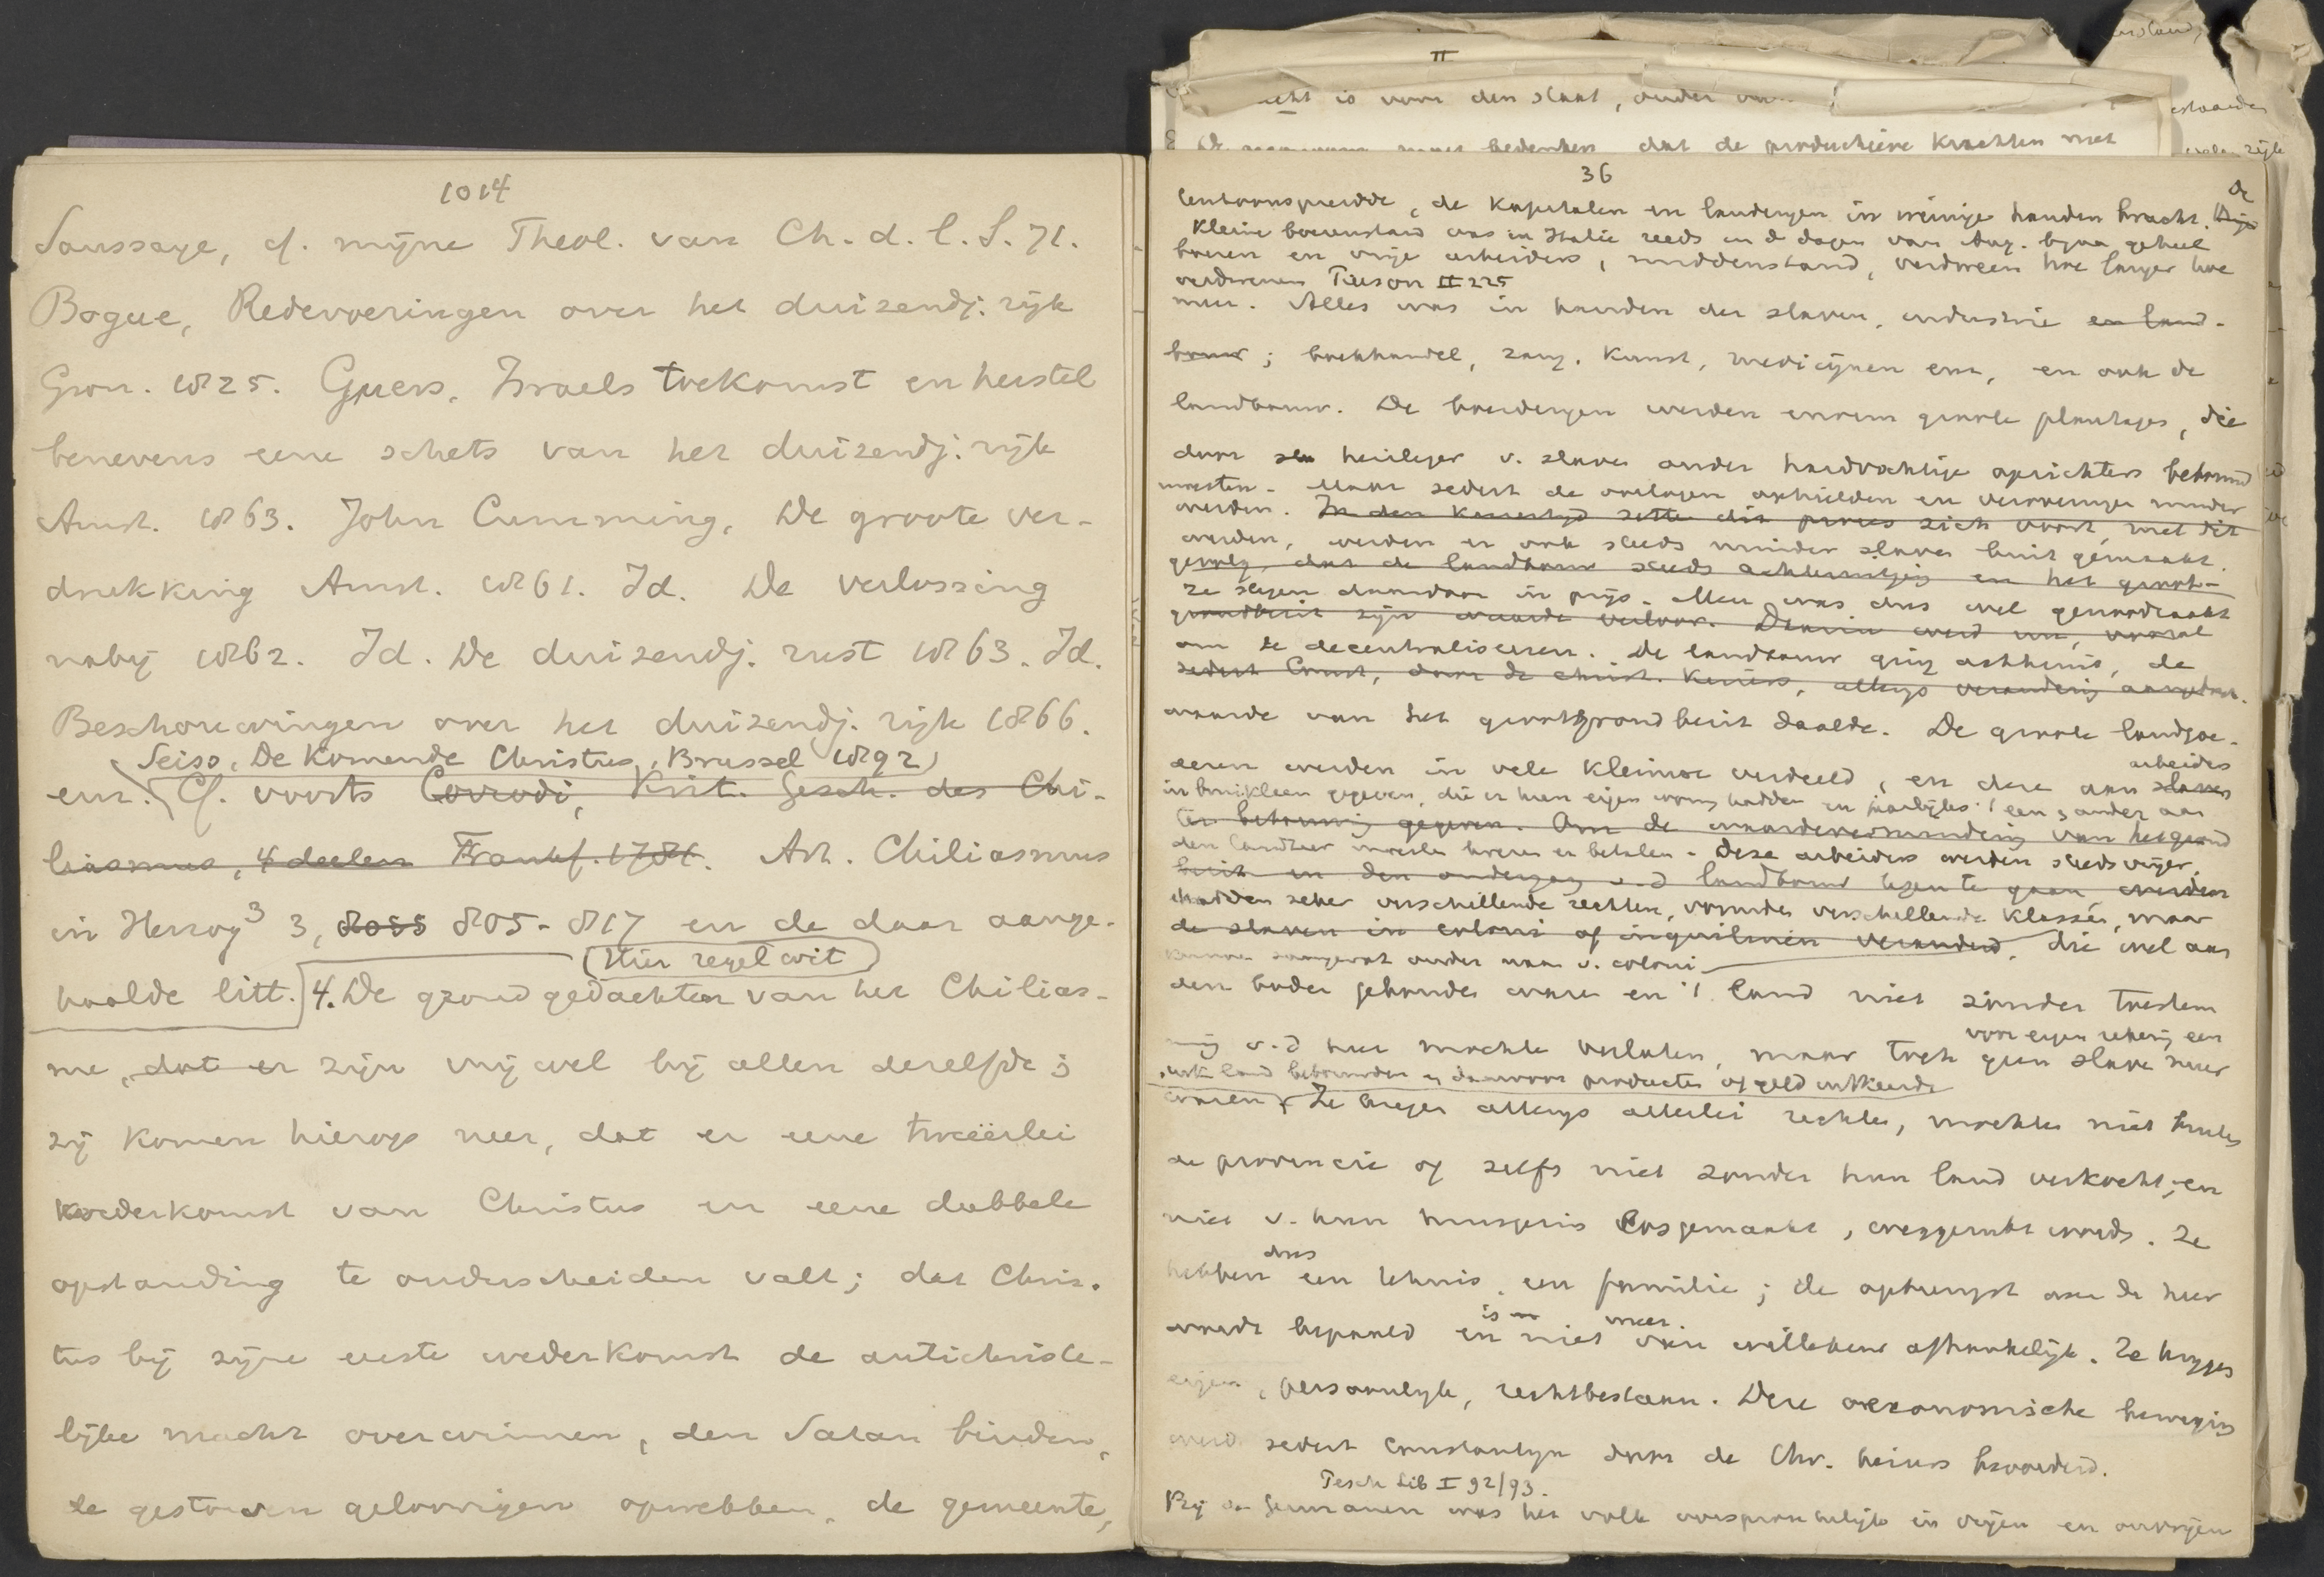 1014
Saussaye, cf. mijne Theol. van Ch. d. l. S. 71.
Bogue, Redevoeringen over het duizendj. rijk
Gron. 1825. Guers, Israels toekomst en herstel
benevens eene schets van het duizendj. rijk
Amst. 1863. John Cumming, De groote ver-
drukking Amst. 1861. Id. De verlossing
nabij 1862. Id. De duizendj. rust 1863. Id.
Beschouwingen over het duizendj. rijk 1866.
Seiss, De Komende Christus, Brussel 1892)
enz. Cf. voorts Corrodi, Krit. Gesch. des Chi-
liasmus, 4 deelen Frankf. 1781. Art. Chiliasmus
in Herzog3 3, 805-817 en de daar aange-
(Hier regel wit)
haalde litt. 4. De grondgedachten van het Chilias-
me, dat er zijn vrij wel bij allen dezelfde;
zij komen hierop neer, dat er eene tweeërlei
wederkomst van Christus en eene dubbele
opstanding te onderscheiden valt; dat Chris-
tus bij zijne eerste wederkomst de antichriste-
lijke macht overwinnen, den Satan binden,
de gestorven geloovigen opwekken, de gemeente,
II
is voor den staat, onder
bedenken dat de productieve krachten met
36
de kapitalen en landerijen in weinige handen bracht. De
Kleine boerenstand was in Italie reeds in d dagen van Aug. bijna geheel
boeren en vrije arbeiders, middenstand, verdween hoe langer hoe
verdwenen Pierson II 225
meer. Alles was in handen der slaven, industrie en land-
bouw; boekhandel, zang, Kunst, medicijnen enz, en ook de
landbouw. De boerderijen werden enorm groote plantages, die
door heirleger v. slaven onder hardvochtige opzichters bebouwd
moesten. Maar sedert de oorlogen ophielden en veroveringen minder
werden. In den Keizertijd zette dit proces zich voort, met dit
werden, werden er ook steeds minder slaven buit gemaakt.
gevolg, dat de landbouw steeds achteruitging en het groot-
ze stegen daardoor in prijs. Men was dus wel genoodzaakt
grondbezit zijn waarde verloor. Daarin werd nu, vooral
om te decentraliseren. De landbouw ging achteruit, de
sedert Const, door de christ. Keizers, allengs verandering aangebracht.
waarde van het grootgrondbezit daalde. De groote landgoe-
arbeiders
deren werden in vele kleinere verdeeld, en deze aan slaven
in bruikleen gegeven, die er hun eigen woning hadden en jaarlijks 't een & ander aan
ter bebouwing gegeven. Om de waardevermindering van het grond
den landheer moesten leveren en betalen. Deze arbeiders werden steeds vrijer,
bezit en den ondergang v.d landbouw tegen te gaan werden
hadden zeker verschillende rechten, vormden verschillende klassen, maar
de slaven in coloni of inquilinen veranderd, die wel aan
kunnen saamgevat onder naam v. coloni
den bodem gebonden waren en 't land niet zonder toestem
voor eigen rekening een
ming v.d heer mochten verlaten, maar toch geen slaven meer
stuk land bebouwden en daarvoor producten of geld uitkeerden
waren. Ze kregen allengs allerlei rechten, mochten niet buiten
de provincie of zelfs niet zonder hun land verkocht, en
niet v. hun huisgezin losgemaakt, weggerukt worden. Ze
dus
hebben een tehuis, een familie; de opbrengst aan de heer
is meer
wordt bepaald en niet van willekeur afhankelijk. Ze krijgen
eigen, persoonlijk, rechtsbestaan. Deze oeconomische beweging
werd sedert Constantijn door de Chr. keizers bevorderd.
Pesch Lib I 92/93.
Bij de Germanen was het volk oorspronkelijk in vrijen en onvrijen